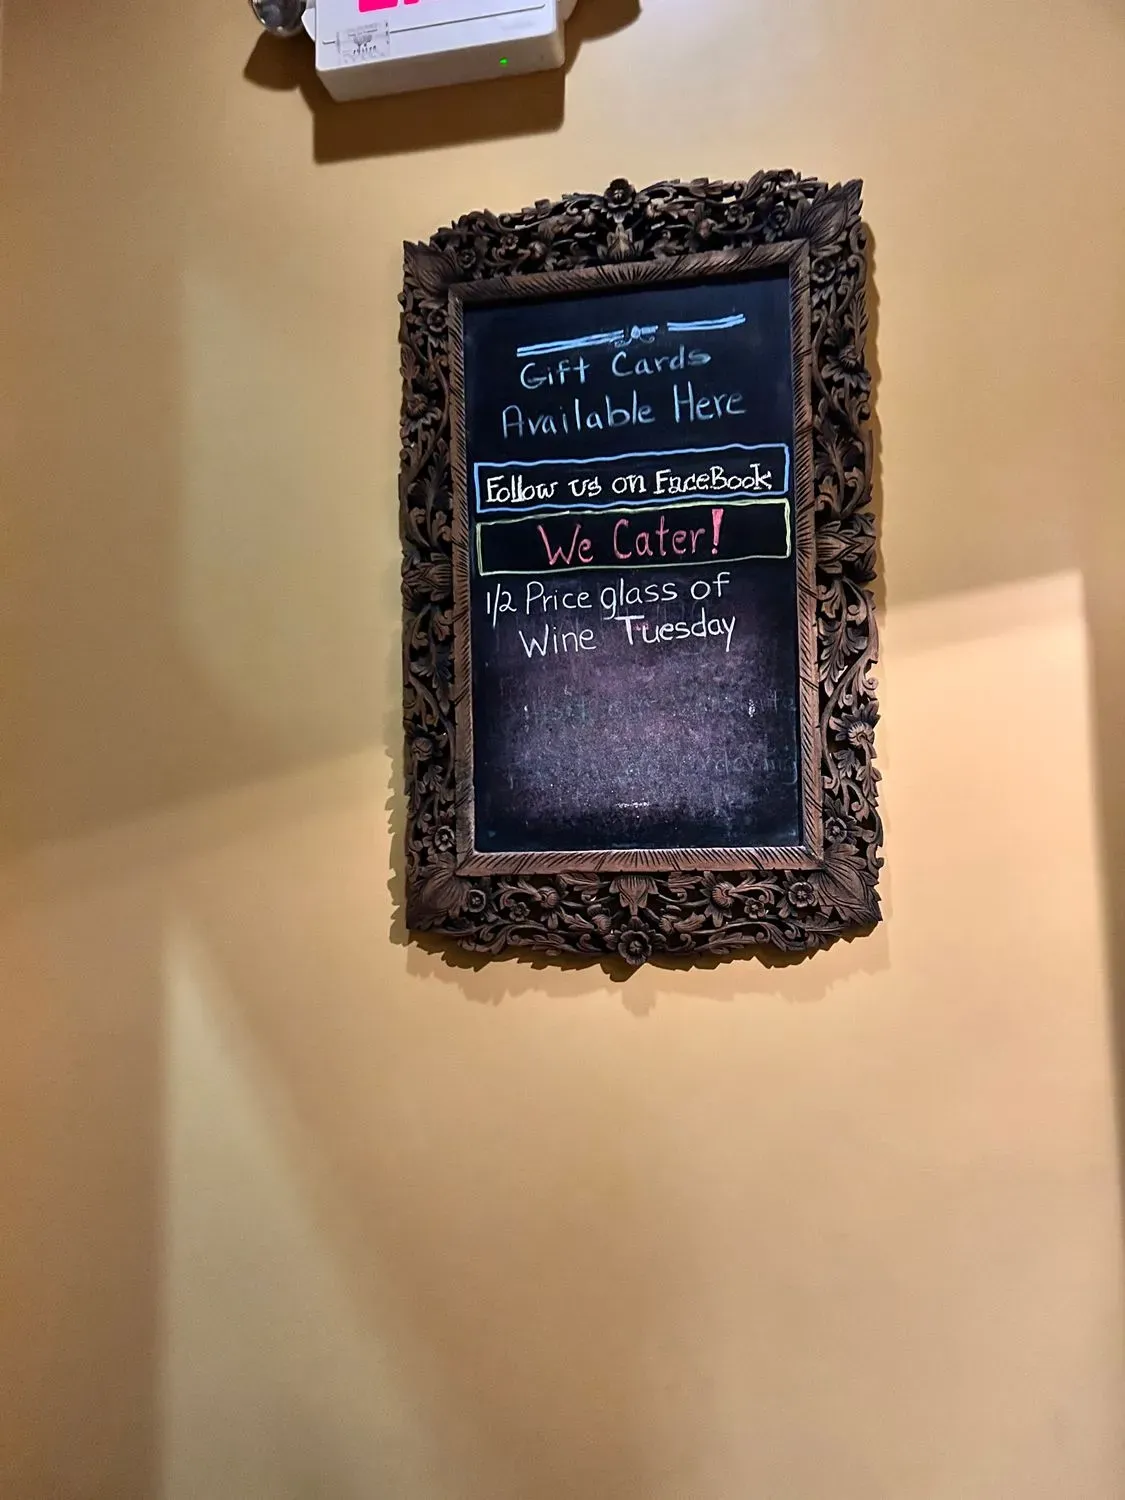 Gift Cards
Available Here
Follow us on FaceBook
We Cater!
1/2 Price glass of
Wine Tuesday